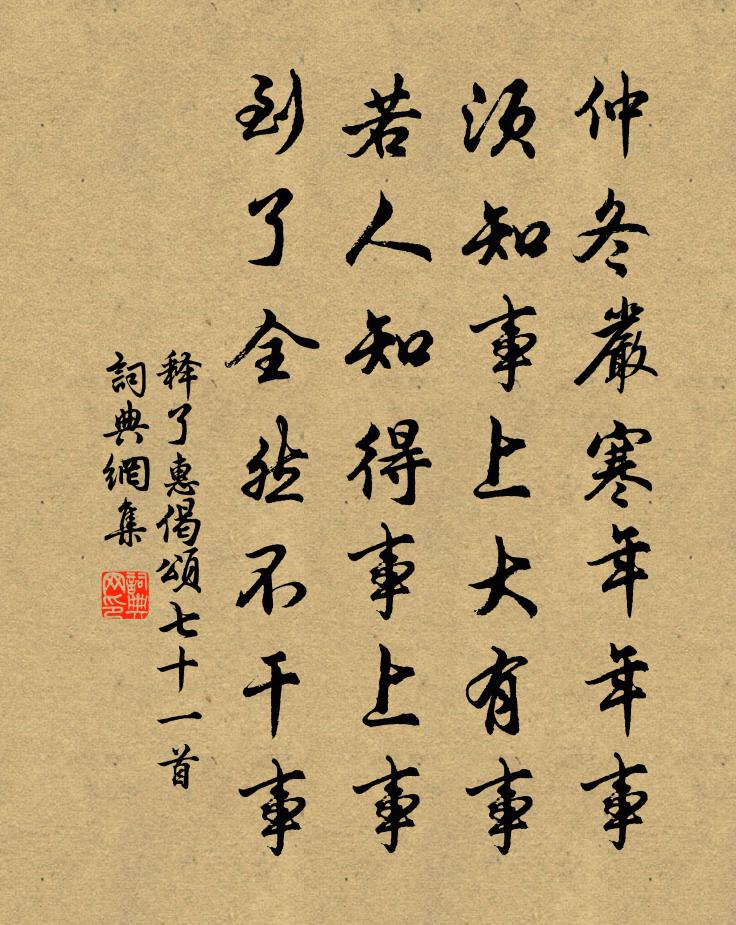 仲冬嚴寒年年事
須知事上大有事
若人知得事上事
到了全然不干事
释了惠偈頌七十一首
詞典網集
詞典网印